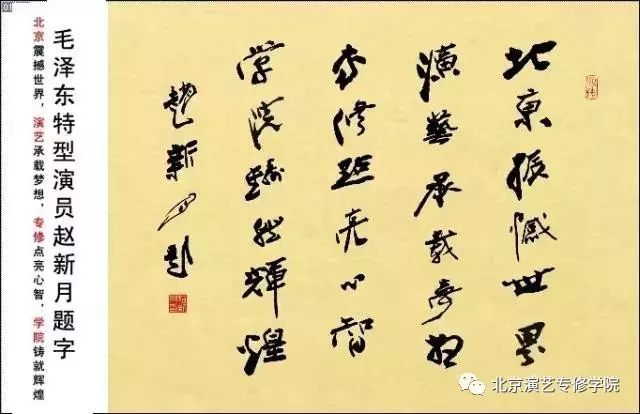 01
毛泽东特型演员赵新月题字
北京震撼世界，演艺承载梦想，专修点亮心智，学院铸就辉煌
北京振憾世界
演藝承载夢想
专修点亮心智
学院铸就輝煌
趙新月题
北京演艺专修学院